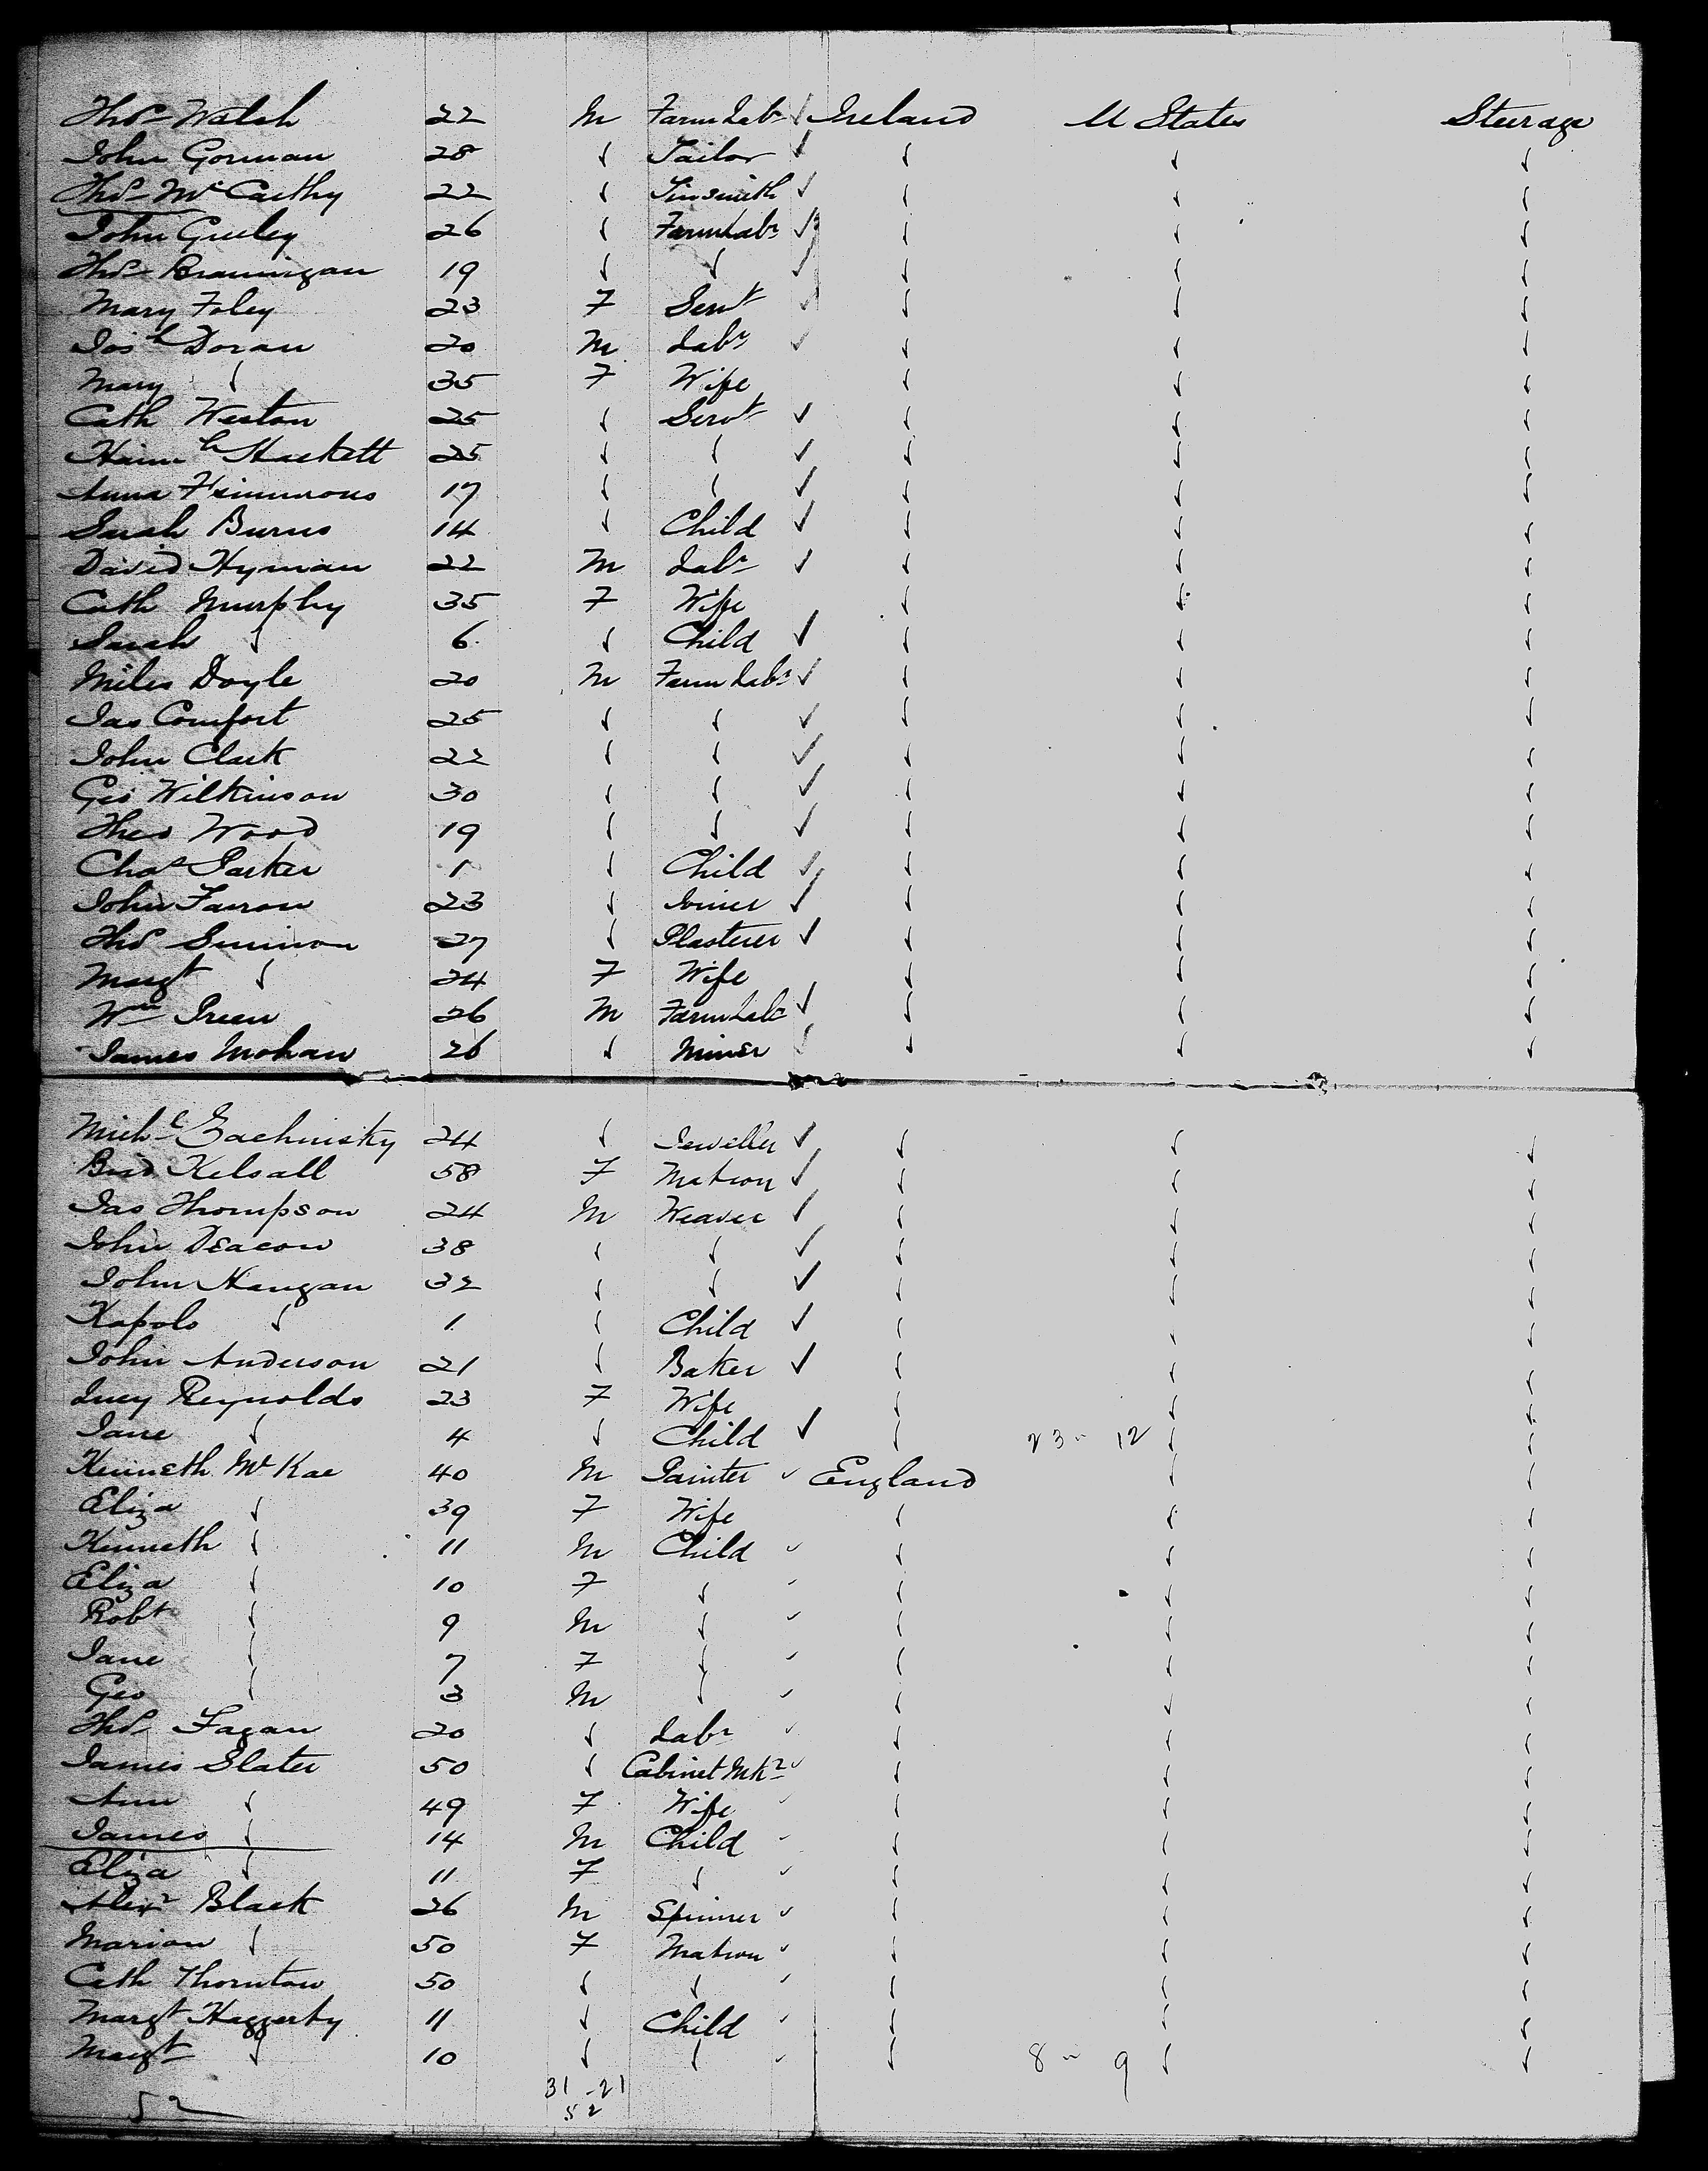 Thos Walsh 22 M Farm Labr Ireland U States Steerage
John Gorman 28 " Tailor " " "
Thos McCarthy 22 " Tinsmith " " "
John Greeley 26 " Farm Labr " " "
Thos Brannigan 19 " " " " "
Mary Foley 23 F Servt " " "
Josh Doran 20 M Labr " " "
Mary " 35 F Wife " " "
Cath Weston 25 " Servt " " "
Hannh Hackett 25 " " " " "
Anna 17 " " " " "
Sarah Burns 14 " Child " " "
David Hyman 22 M Labr " " "
Cath Murphy 35 F Wife " " "
Sarah " 6 " Child " " "
Miles Doyle 20 M Farm Labr " " "
Jas Comfort 25 " " " " "
John Clark 22 " " " " "
Geo Wilkinson 30 " " " " "
Theo Wood 19 " " " " "
Chas Parker 1 " Child " " "
John Farrow 23 " Joiner " " "
Thos 27 " Plasterer " " "
Margt " 24 F Wife " " "
Wm Green 26 M Farm Labr " " "
James Mohan 26 " Miner " " "
Michl 24 " Jeweller " " "
Brid Kelsall 58 F Matron " " "
Jas Thompson 24 M Weaver " " "
John Deacon 38 " " " " "
John Hangan 32 " " " " "
Kapolo " 1 " Child " " "
John Anderson 21 " Baker " " "
Lucy Reynolds 23 F Wife " " "
Jane " 4 " Child " 23 - 12 " "
Kenneth McKae 40 M Painter England " "
Eliza " 39 F Wife " " "
Kenneth " 11 M Child " " "
Eliza " 10 F " " " "
Robt " 9 M " " " "
Jane " 7 F " " " "
Geo " 3 M " " " "
Thos Fagan 20 " Labr " " "
James Slater 50 " Cabinet Mkr " " "
Ann " 49 F Wife " " "
James " 14 M Child " " "
Eliza " 11 F " " " "
Alexr Black 26 M Spinner " " "
Marion " 50 F Matron " " "
Cath Thornton 50 " " " " "
Margt Haggerty 11 " Child " " "
Margt " 10 " " " 8 - 9 " "
31 - 21
52 52